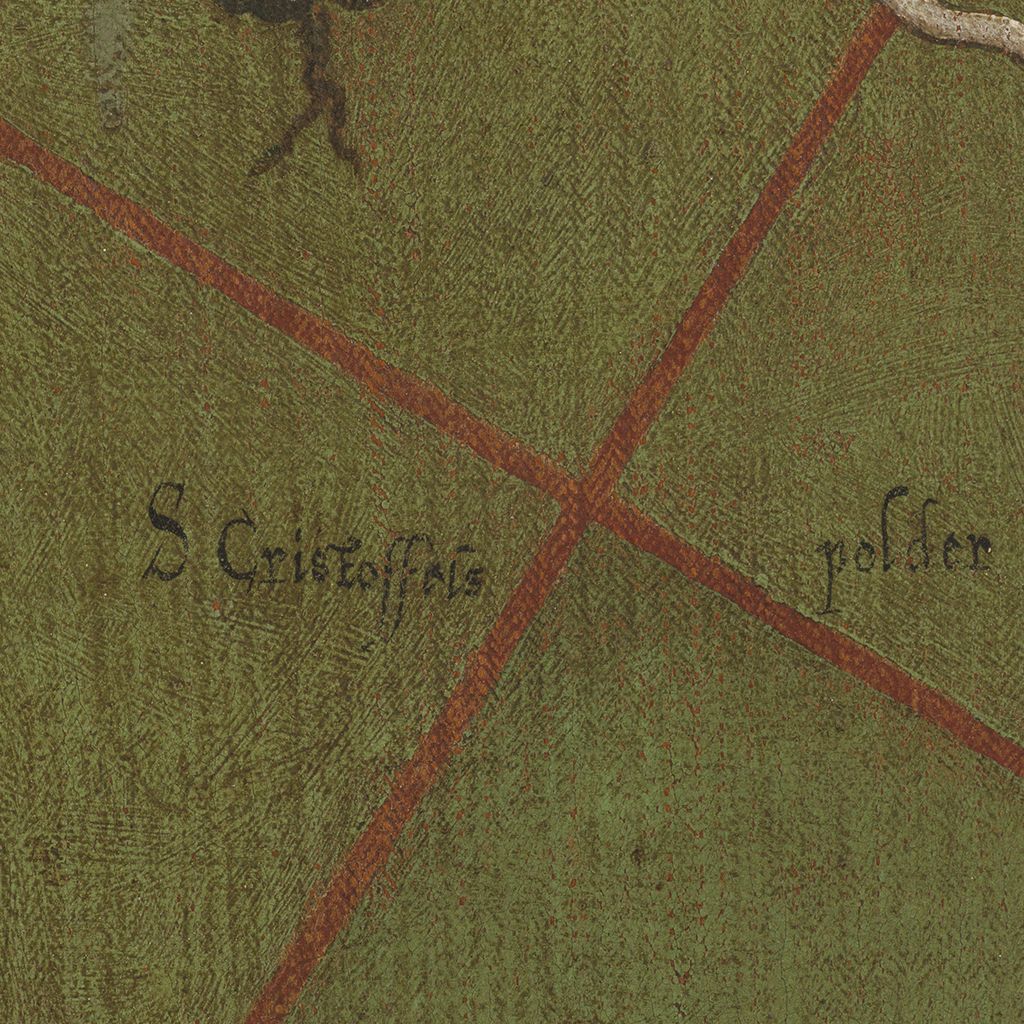 S Cristoffels polder